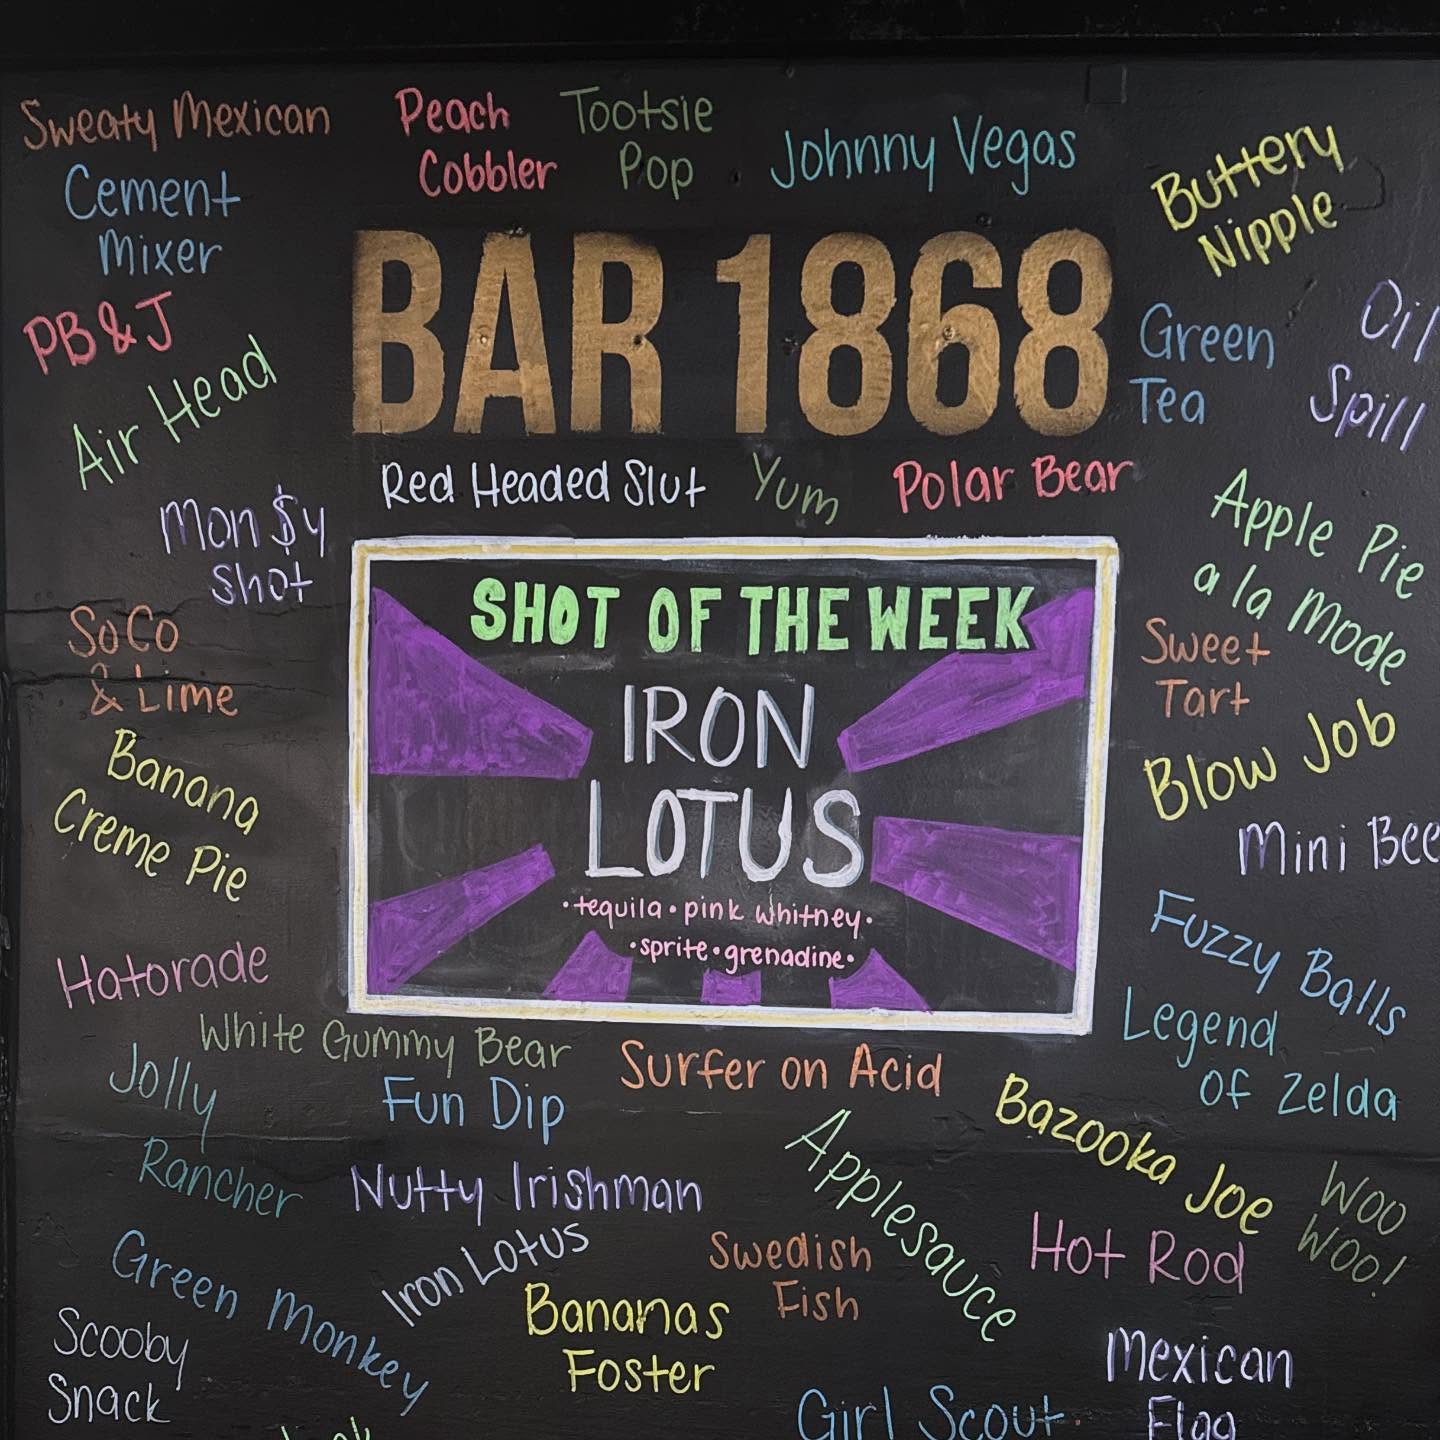 Sweaty Mexican
Peach
Cobbler
Tootsie
Pop
Johnny Vegas
Buttery
Nipple
Cement
Mixer
BAR 1868
PB & J
Air Head
Green
Tea
Oil
Spill
Red Headed Slut
Yum
Polar Bear
Mon$y
Shot
Apple Pie
a la Mode
SHOT OF THE WEEK
IRON
LOTUS
·tequila·pink whitney·
·sprite·grenadine·
SoCo
& Lime
Sweet
Tart
Banana
Creme Pie
Blow Job
Mini Bee
Hatorade
Fuzzy Balls
Legend
of Zelda
White Gummy Bear
Surfer on Acid
Jolly
Rancher
Fun Dip
Bazooka Joe
Applesauce
Nutty Irishman
Woo
Woo!
Iron Lotus
Swedish
Fish
Hot Rod
Green Monkey
Bananas
Foster
Scooby
Snack
Mexican
Flag
Girl Scout